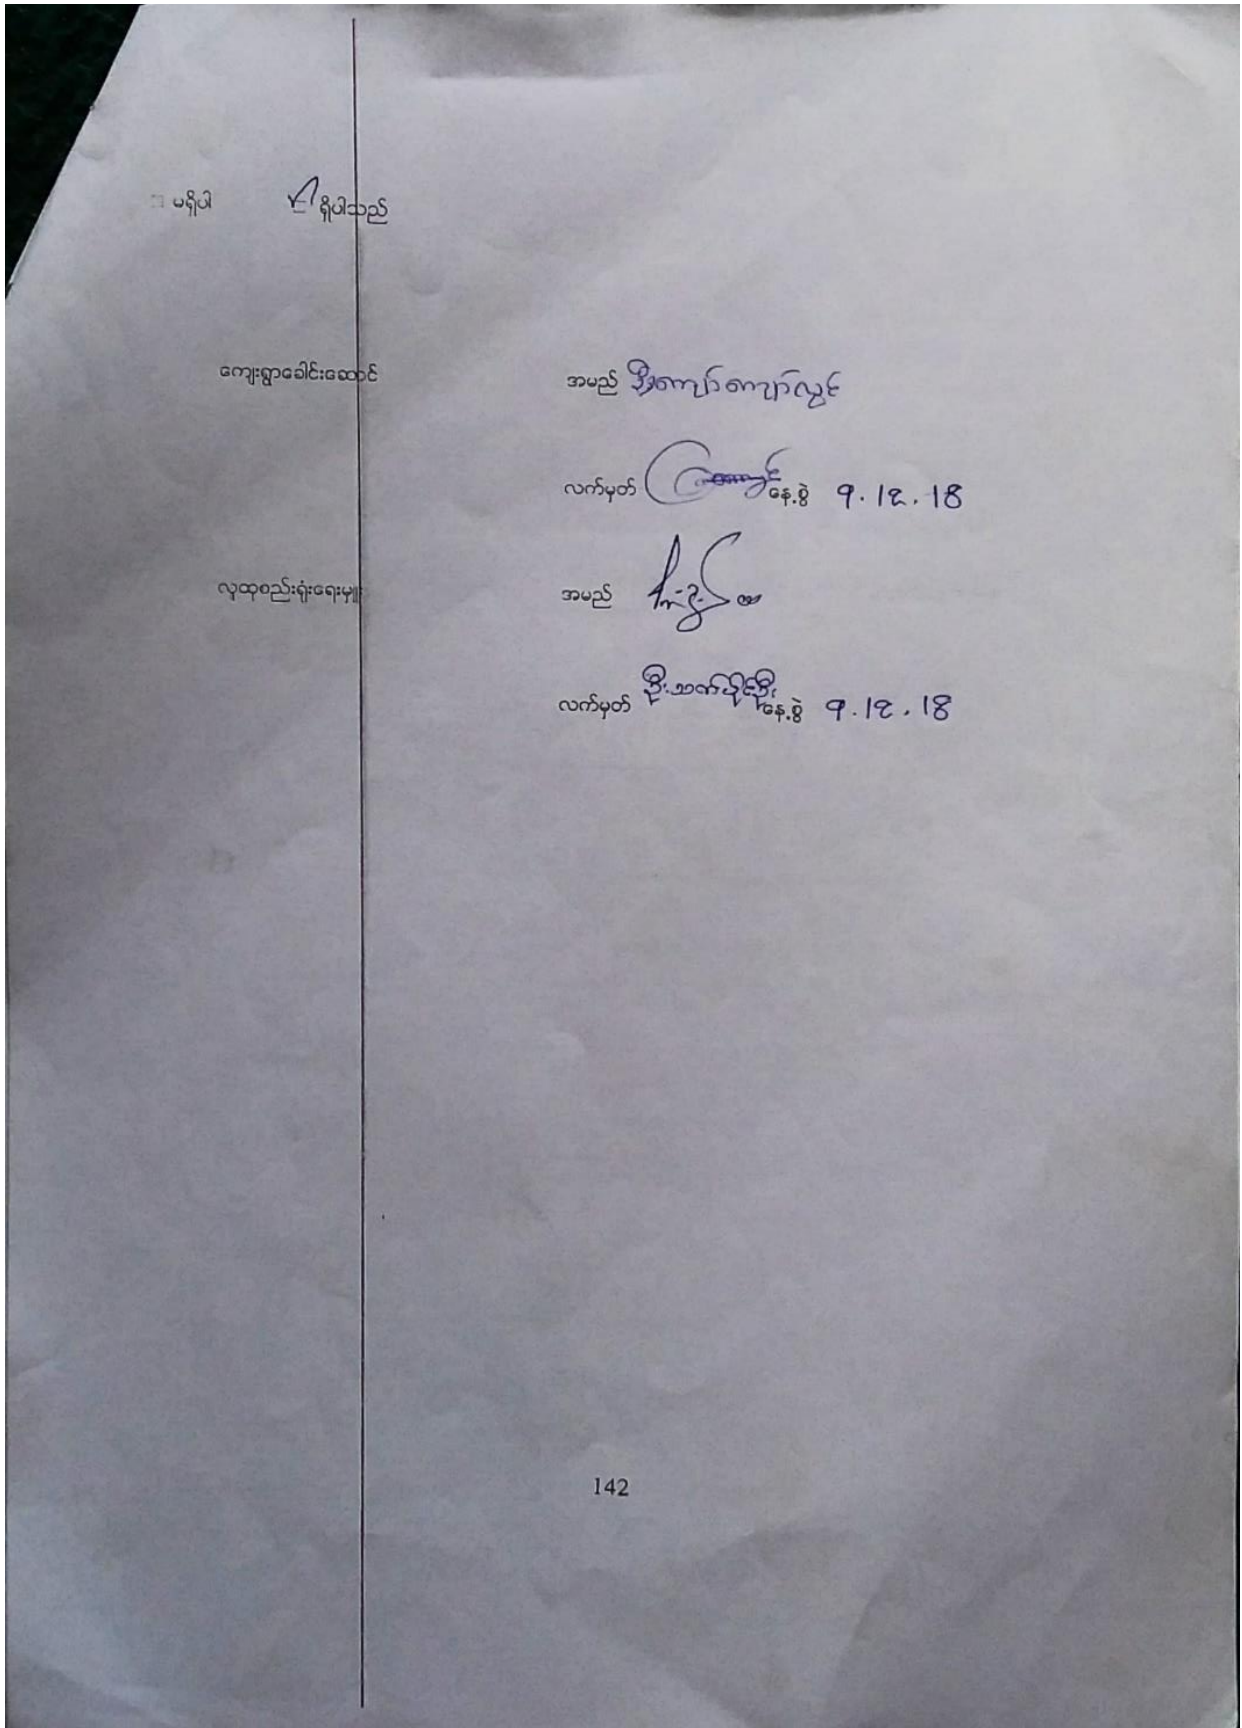 □ မရှိပါ ☑ ရှိပါသည်
ကျေးရွာခေါင်းဆောင် အမည် ဦးကျော်ကျော်လွင်
လက်မှတ် နေ့စွဲ 9.12.18
လူထုစည်းရုံးရေးမှူး အမည်
လက်မှတ် ဦးသက်ပိုင်ဦး နေ့စွဲ 9.12.18
142